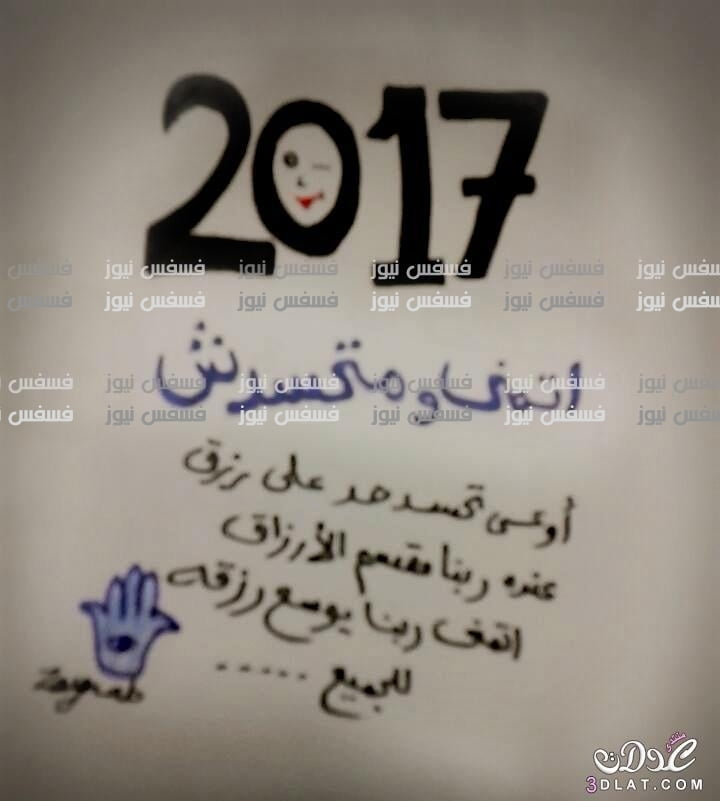 2017
اتمنى ومتحسدش
أوعى تحسد حد على رزق
عنده ربنا مقسم الأرزاق
اتمنى ربنا يوسع رزقه
للجميع .....
Zaynab
فسفس نيوز فسفس نيوز فسفس نيوز فسفس نيوز فسفس نيوز فسفس نيوز
فسفس نيوز فسفس نيوز فسفس نيوز فسفس نيوز فسفس نيوز فسفس نيوز
فسفس نيوز فسفس نيوز فسفس نيوز فسفس نيوز فسفس نيوز فسفس نيوز
فسفس نيوز فسفس نيوز فسفس نيوز فسفس نيوز فسفس نيوز فسفس نيوز
منتدى عدلات
3DLAT.COM